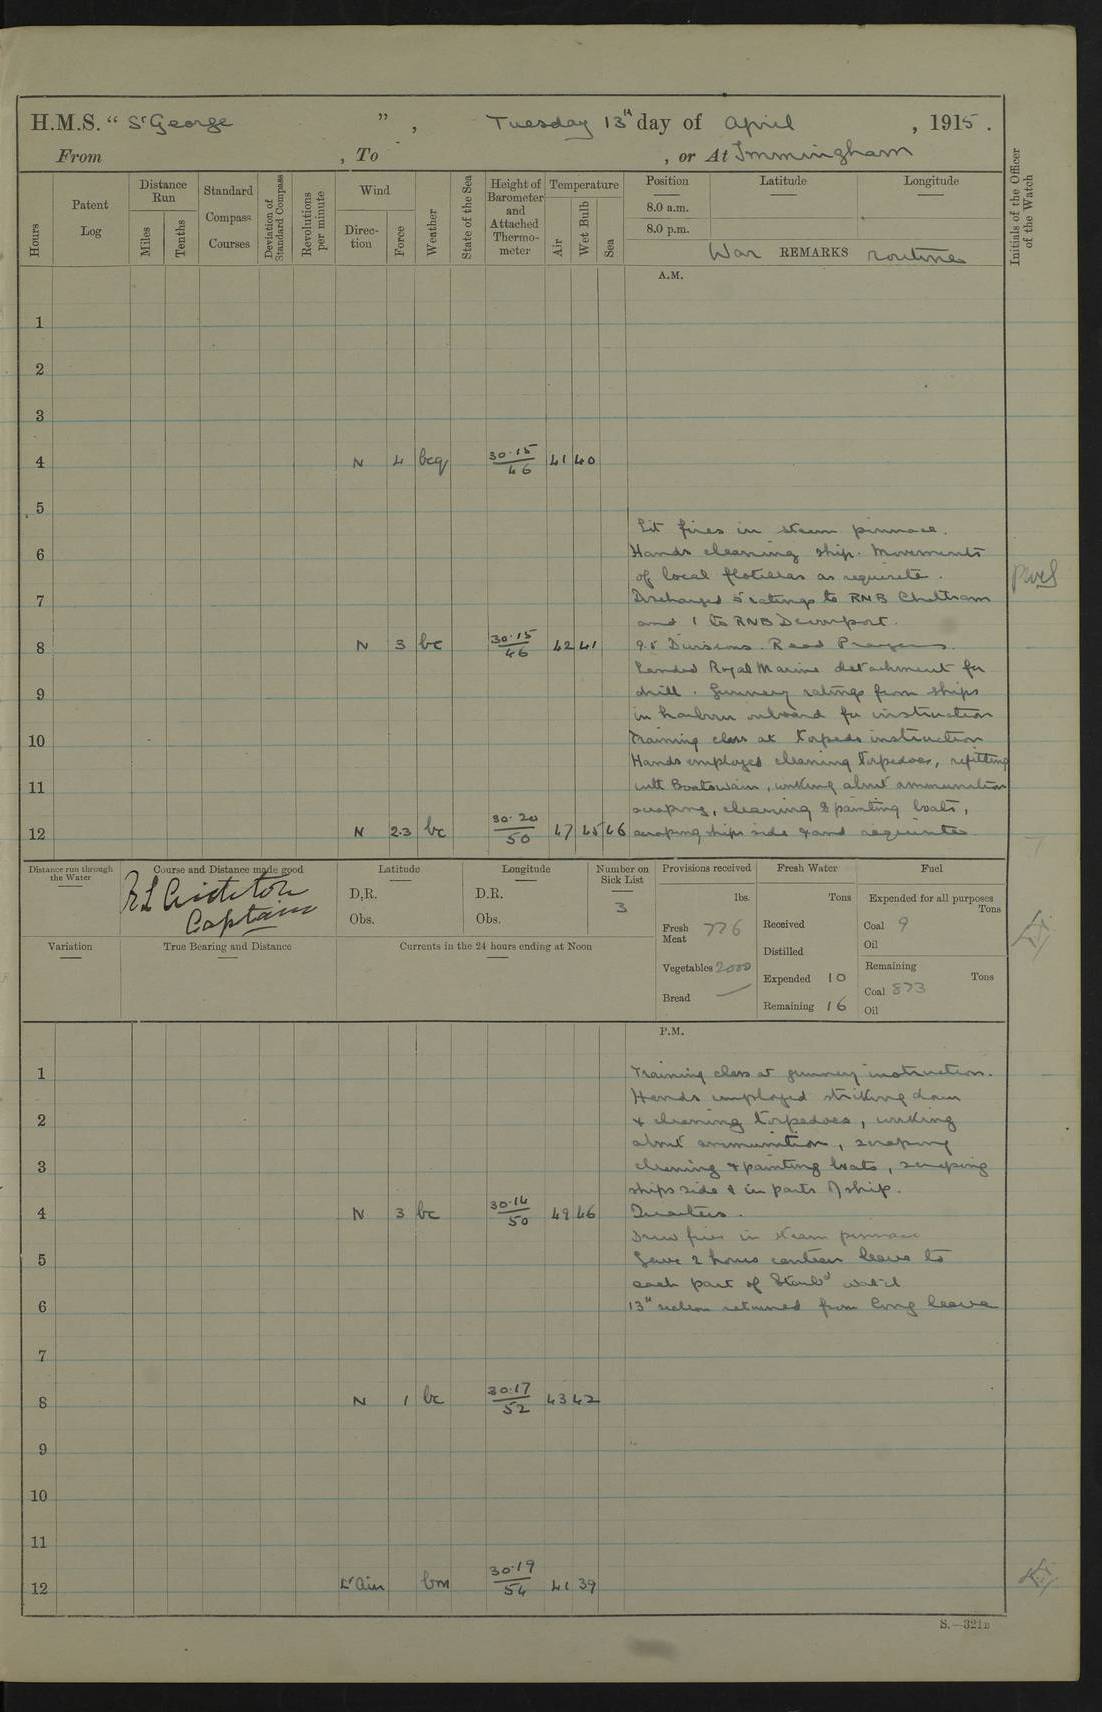 H.M.S. " St George " , Tuesday 13th day of April , 1915 .
From , To , or At Immingham
Hours
Patent Log
Distance Run
Miles
Tenths
Standard Compass Courses
Deviation of Standard Compass
Revolutions per minute
Wind
Direction
Force
Weather
State of the Sea
Height of Barometer and Attached Thermometer
Temperature
Air
Wet Bulb
Sea
Position
8.0 a.m.
8.0 p.m.
Latitude
Longitude
Initials of the Officer of the Watch
War REMARKS routine
A.M.
1
2
3
4 N 4 bcq 30.15/46 41 40
5
Lit fires in steam pinnace.
6 Hands cleaning ship. Movements
of local flotillas as requisite.
7 Discharged 5 ratings to RNB Chatham
and 1 to RNB Devonport.
8 N 3 bc 30.15/46 42 41 9.5 Divisions. Read Prayers.
Landed Royal Marine detachment for
9 drill. Gunnery ratings from ships
in harbour onboard for instruction
10 Training class at torpedo instruction
Hands employed cleaning torpedoes, refitting
11 with Boatswain, working about ammunition
scraping, cleaning & painting boats,
12 N 2.3 bc 30.20/50 47 45 46 scraping ships side & and requisite
Distance run through the Water
Course and Distance made good
Captain
Latitude
D.R.
Obs.
Longitude
D.R.
Obs.
Number on Sick List
3
Provisions received
lbs.
Fresh Meat 776
Vegetables 2000
Bread —
Fresh Water
Tons
Received
Distilled
Expended 10
Remaining 16
Fuel
Expended for all purposes
Tons
Coal 9
Oil
Remaining
Tons
Coal 873
Oil
Variation
True Bearing and Distance
Currents in the 24 hours ending at Noon
P.M.
1 Training class at gunnery instruction.
Hands employed striking down
2 & cleaning torpedoes, working
about ammunition, scraping
3 cleaning & painting boats, scraping
ships side & in parts of ship.
4 N 3 bc 30.14/50 49 46 Quarters.
Drew fires in steam pinnace
5 Gave 2 hours canteen leave to
each part of Starbd watch
6 13th section returned from long leave
7
8 N 1 bc 30.17/52 43 42
9
10
11
12 Lt Airs bm 30.19/54 41 39
S.—321B